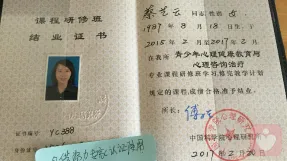 课程研修班
结业证书
证书编号 YC388
蔡艺云 同志 性别 女
1987 年 8 月 18 日生于
2015 年 2 月至 2017 年 2 月
在我所 青少年心理健康教育与
心理咨询治疗
专业课程研修班学习,修完教学计划
规定的课程,成绩合格,准予结业。
所长:
中国科学院心理研究所
2017 年 2 月 20